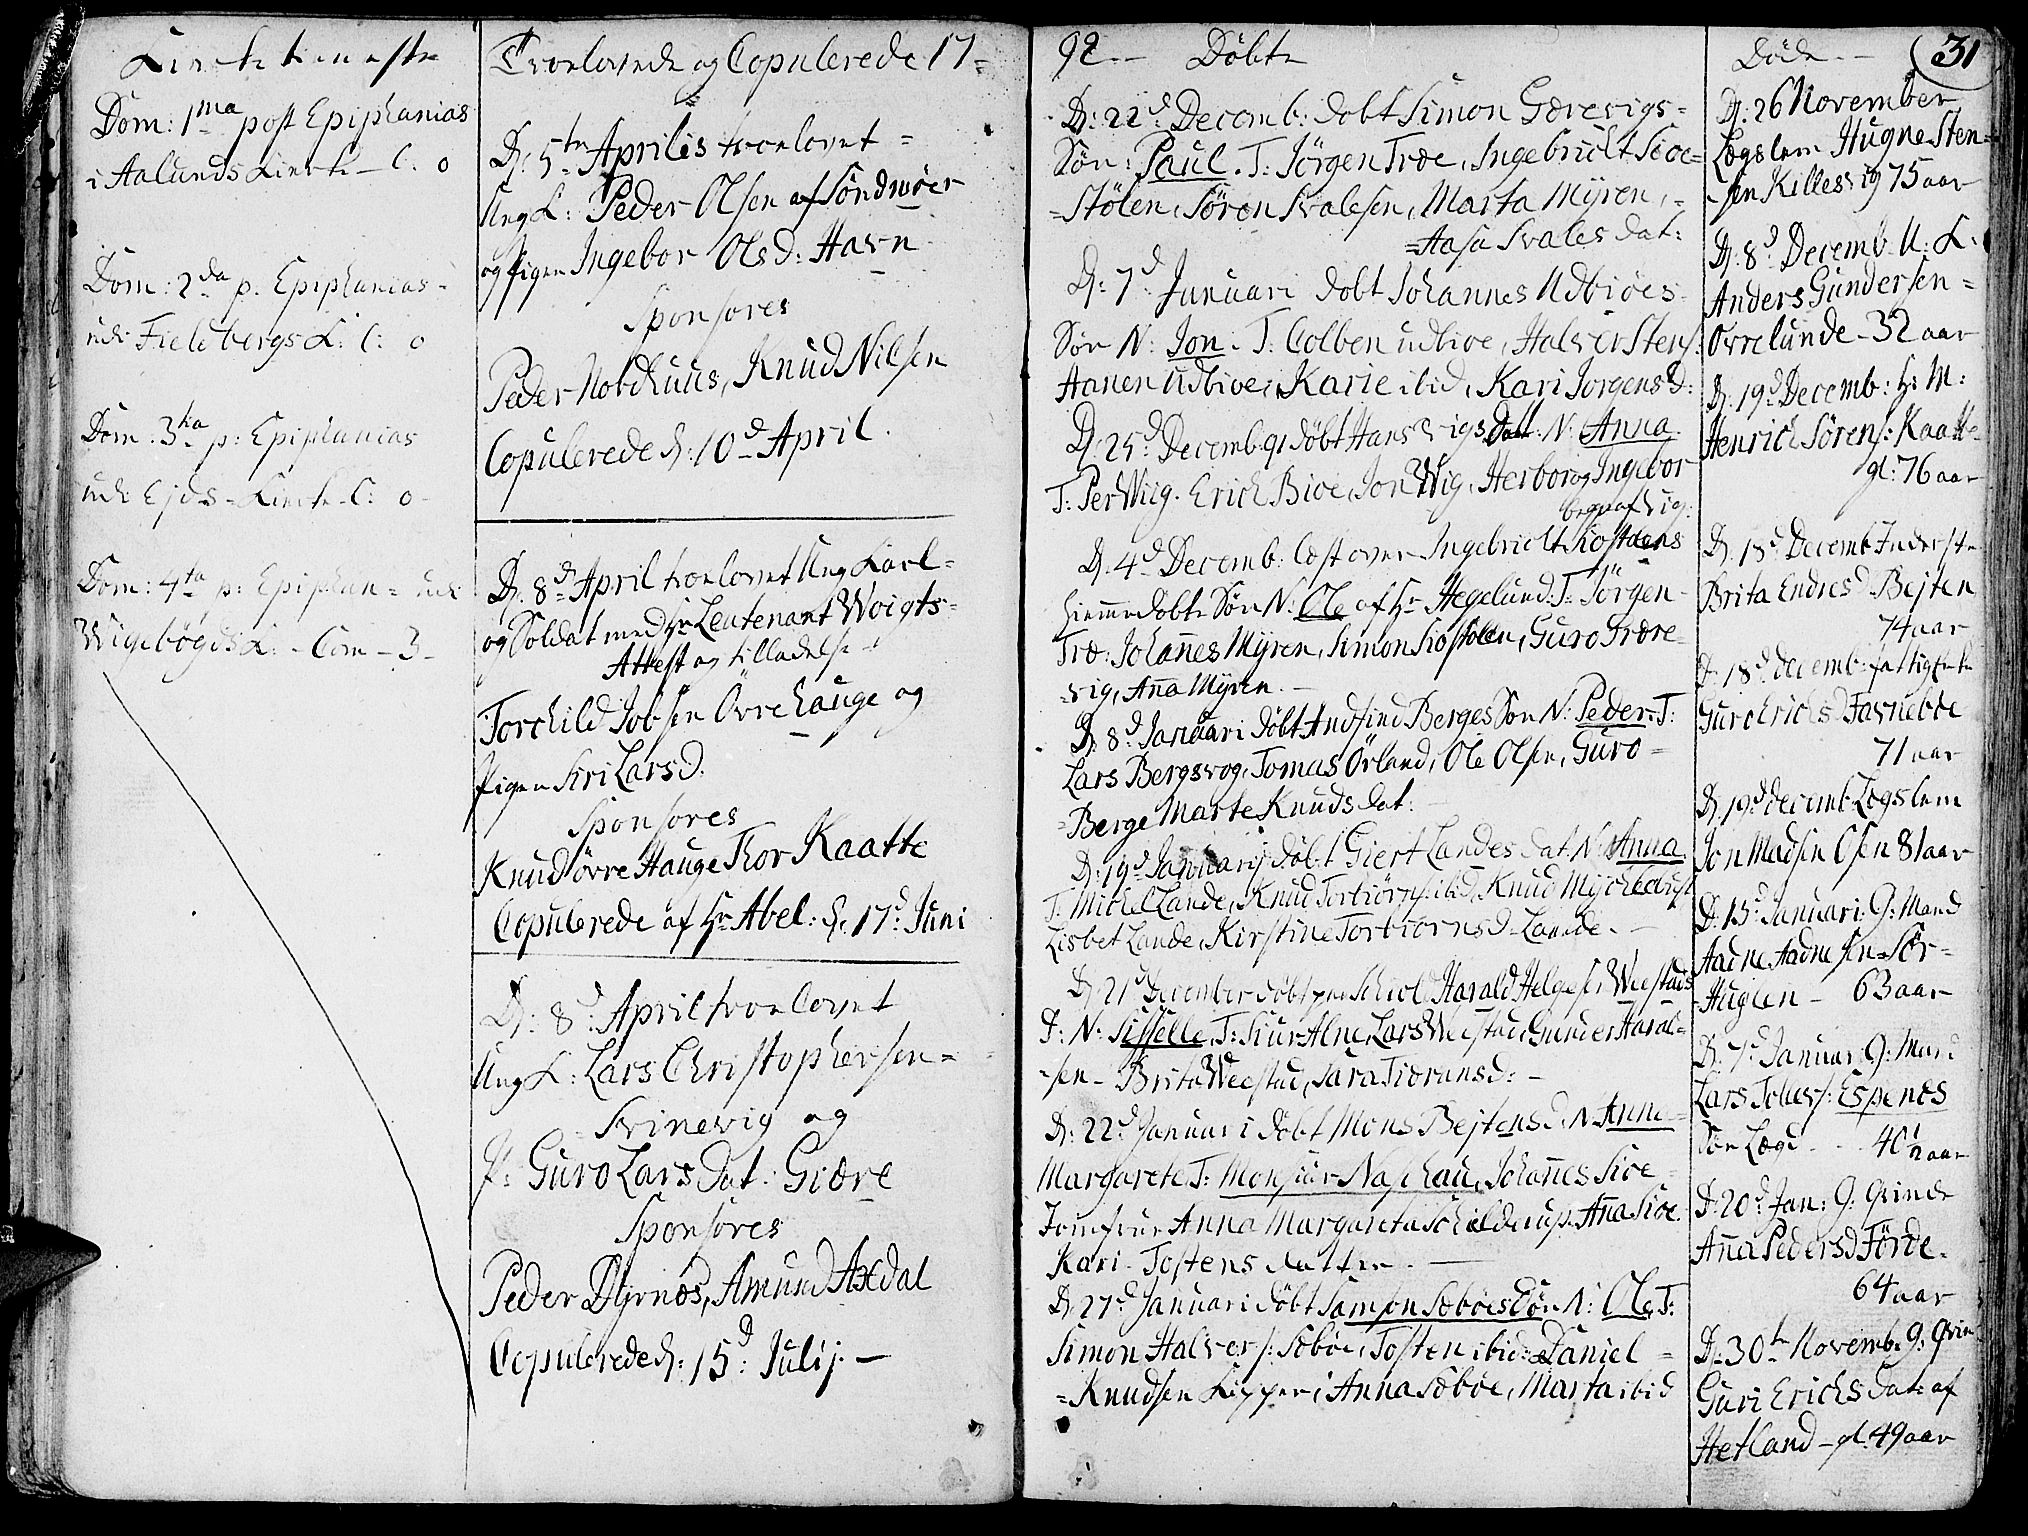 Kircketieneste
Dom: 1ma post Epiphanias
i Aalunds Kircke - C. 0
Dom: 2da p. Epiphanias -
udi Fieldbergs K: C: 0
Dom: 3tia p: Epiphanias
udi Ejds - Kircke - C: 0 -
Dom: 4ta p: Epiphan = udi
Wigebøgds K: - Com - 3 -
Trolovede og Copulerede 17 =
D: 5te Aprilis troelovet =
Ung K: Peder Olsen af Søndmøer
og Pigen Ingebor Olsd: Havn
Sponsores
Peder Nordhuus, Knud Nilsen
Copulerede d: 10d April.
D. 8d April troelovet Ung Karl =
og Soldat med Hr Leutenant Woigts =
Attest og tilladelse -
Torchild Jobsen Øvrehauge og
Pigen Siri Larsd.
Sponsores
Knud øvre Hauge Thor Kaatte
Copulerede af Hr Abel: d. 17d Juni
D: 8d April troelovet
Ung K: Lars Christophersen =
Svinevig og
P: Guro Lars dat: Giære
Sponsores
Peder Dyrnes, Amund Axdal
Copulerede d: 15d: Julij. -
92 -- Døbte
D: 22d: Decemb: døbt Simon Færevigs =
Søn: Paul. T: Jørgen Træ, Ingebricht Sioe =
= Stølen, Søren Svalesen, Marta Myren, -
= Aasa Svales dat:
D: 7d Januari døbt Johannes Udbiøes
Søn N: Jon. T: Colben udbioe, Halver Stens:
Aanen Udbioe, Karie ibid, Kari Jorgensd:
D: 25d Decemb: 91 døbt Hans Vigs Datt: N: Anna
T: Per Wiig. Erich Bioe, Jon Wig, Herbor og Ingebor
begge af Vig:
D. 4d Decemb: læst over Ingebricht Siostøens
hiemmedøbte Søn N: Ole af Hr Hegelund: T: Jørgen
Træ: Johannes Myren, Simon Siostølen, Guro Fære =
vig, Anna Myren. -
D: 8d Januari døbt Andfind Berges Søn N: Peder. T:
Lars Bergsvog, Tomas Ørland, Ole Olsen, Guro =
= Berge Marte Knuds dat: -
D: 19d Januarij døbt Giert Landes dat: N: Anna
T: Michel Lande, Knud Torbiørns: ibid, Knud Myckebust
Lisbet Lande, Kirstine Torbiornsd Lande. -
D 21d December døbt Harald Helges: Weestads
D: N: Sisselle, T: Siur Alne, Lars Weestad, Gunder Haral =
- sen - Brita Weestad, Sara Tiøransd: -
D: 22d Januari døbt Mons Bejtens d: N: Anna
Margarete T: Monsiur Naschau, Johannes Sioe -
Jomfrue Anna Margareta Schielderup, Anna Sioe
Kari Tostens datter. -
D. 27d Januari døbt Samson Sæbøes Søn N: Ole, T:
Simon Halvers: Sæbøe, Tosten ibid: Daniel =
= Knudsen Kipper, Anna Sæbøe, Marta ibid
Døde -- 31
D: 26 November
Lægslem Hugne Sten =
- sen Killesvig 75 aar
D: 8d Decemb U: K:
Anders Gundersen =
Øvrelunde - 32 aar
D. 19d Decemb: h: M:
Henrich Sørens: Kaatte
gl: 76 aar
D. 18d Decemb Inderste
Brita Endresd Bejten
74 aar
D. 18d Decemb: fattig Enke
Guro Erichsd Favneboe
71 aar
D. 19d Decemb: Lægslem
Jon Madsen Osen 81 aar
D: 15d Januari: G: Mand
Aadne Aadnesen Sør =
Hugien - 63 aar
D. 7d Januar: G: Mand
Lars Tolievs: Espenes
Søe Lægd - 40 1/2 aar
D: 20d Jan: G: Qvinde
Anna Pedersd Førde.
64 aar
D: 30te Novemb. G: Qvin
Guri Erichs dat: af
Hetland - gl: 49 aar